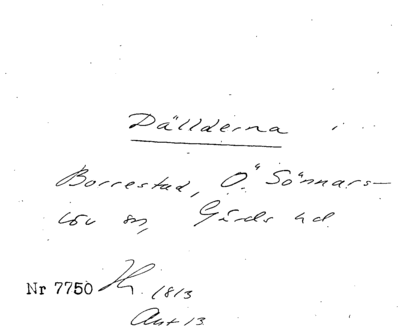 Dällderna i
Borrestad, Ö. Sönnars-
löv sn, Gärds hd
Nr 7750 Hr. 1813
Akt 13